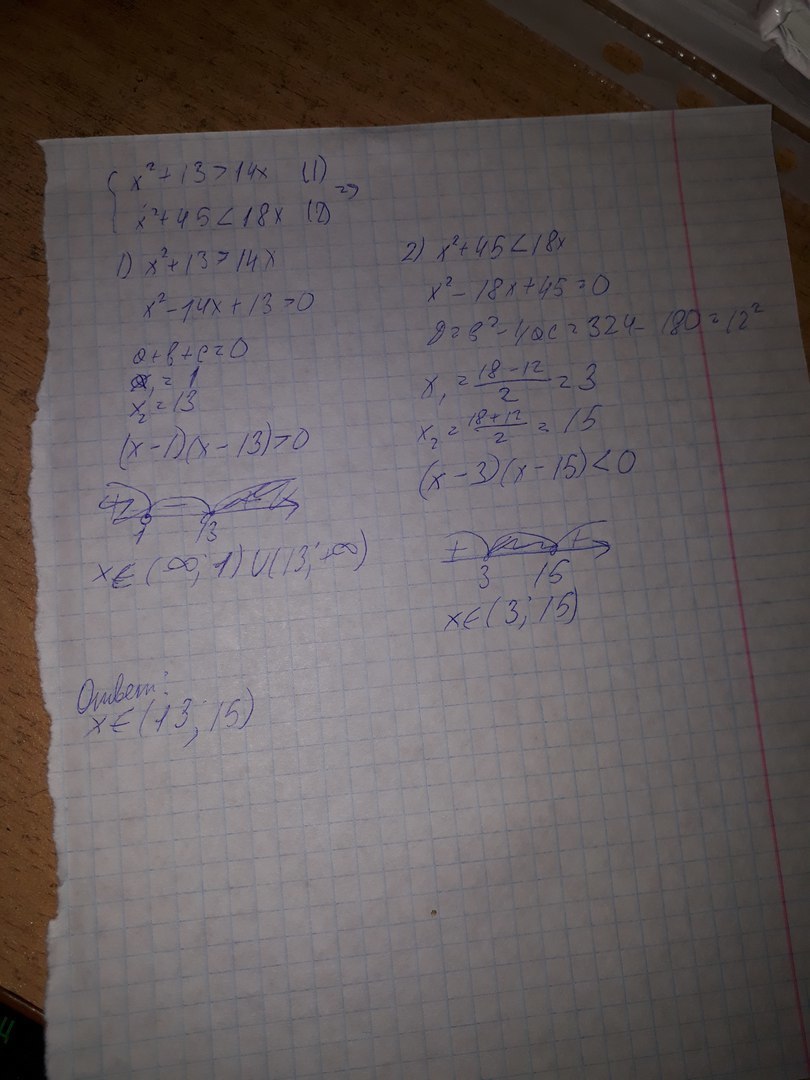 x²+13>14x (1)
=>
x²+45<18x (2)
1) x²+13>14x
x²-14x+13=0
a+b+c=0
x₁=1
x₂=13
(x-1)(x-13)>0
+ - +
1 13
x∈(∞; 1)∪(13; +∞)
2) x²+45<18x
x²-18x+45=0
D=b²-4ac=324-180=12²
x₁=(18-12)/2=3
x₂=(18+12)/2=15
(x-3)(x-15)<0
+ - +
3 15
x∈(3; 15)
Ответ:
x∈(13; 15)